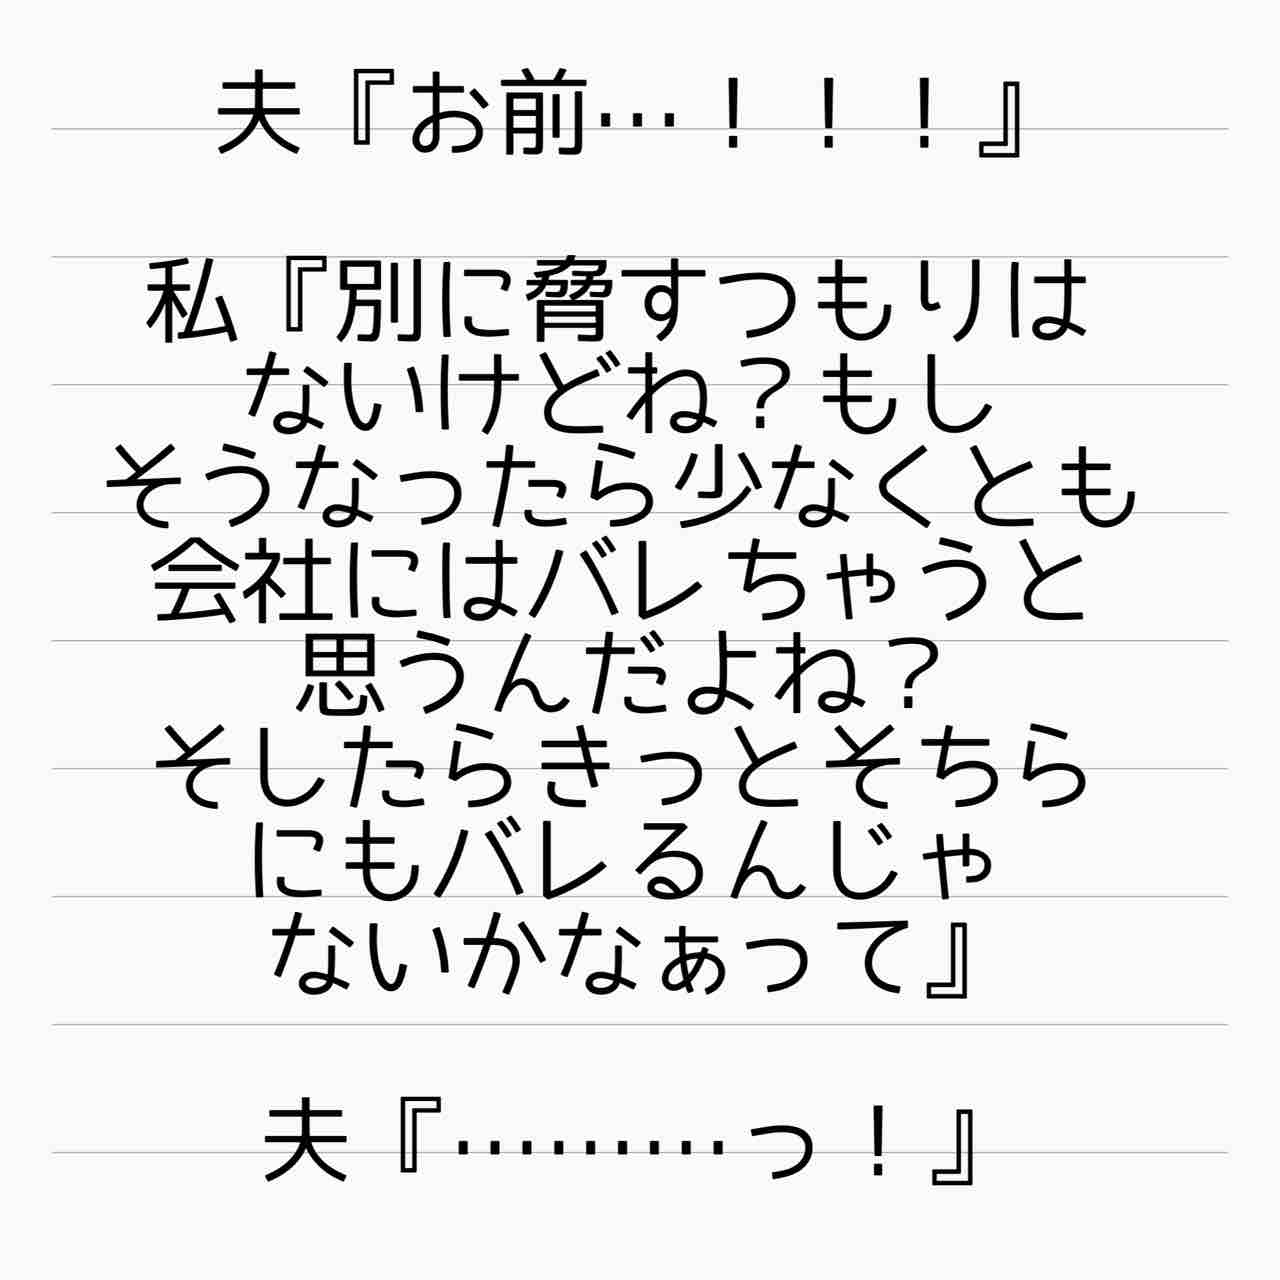 夫『お前…！！！』
私『別に脅すつもりは
ないけどね？もし
そうなったら少なくとも
会社にはバレちゃうと
思うんだよね？
そしたらきっとそちら
にもバレるんじゃ
ないかなぁって』
夫『………っ！』